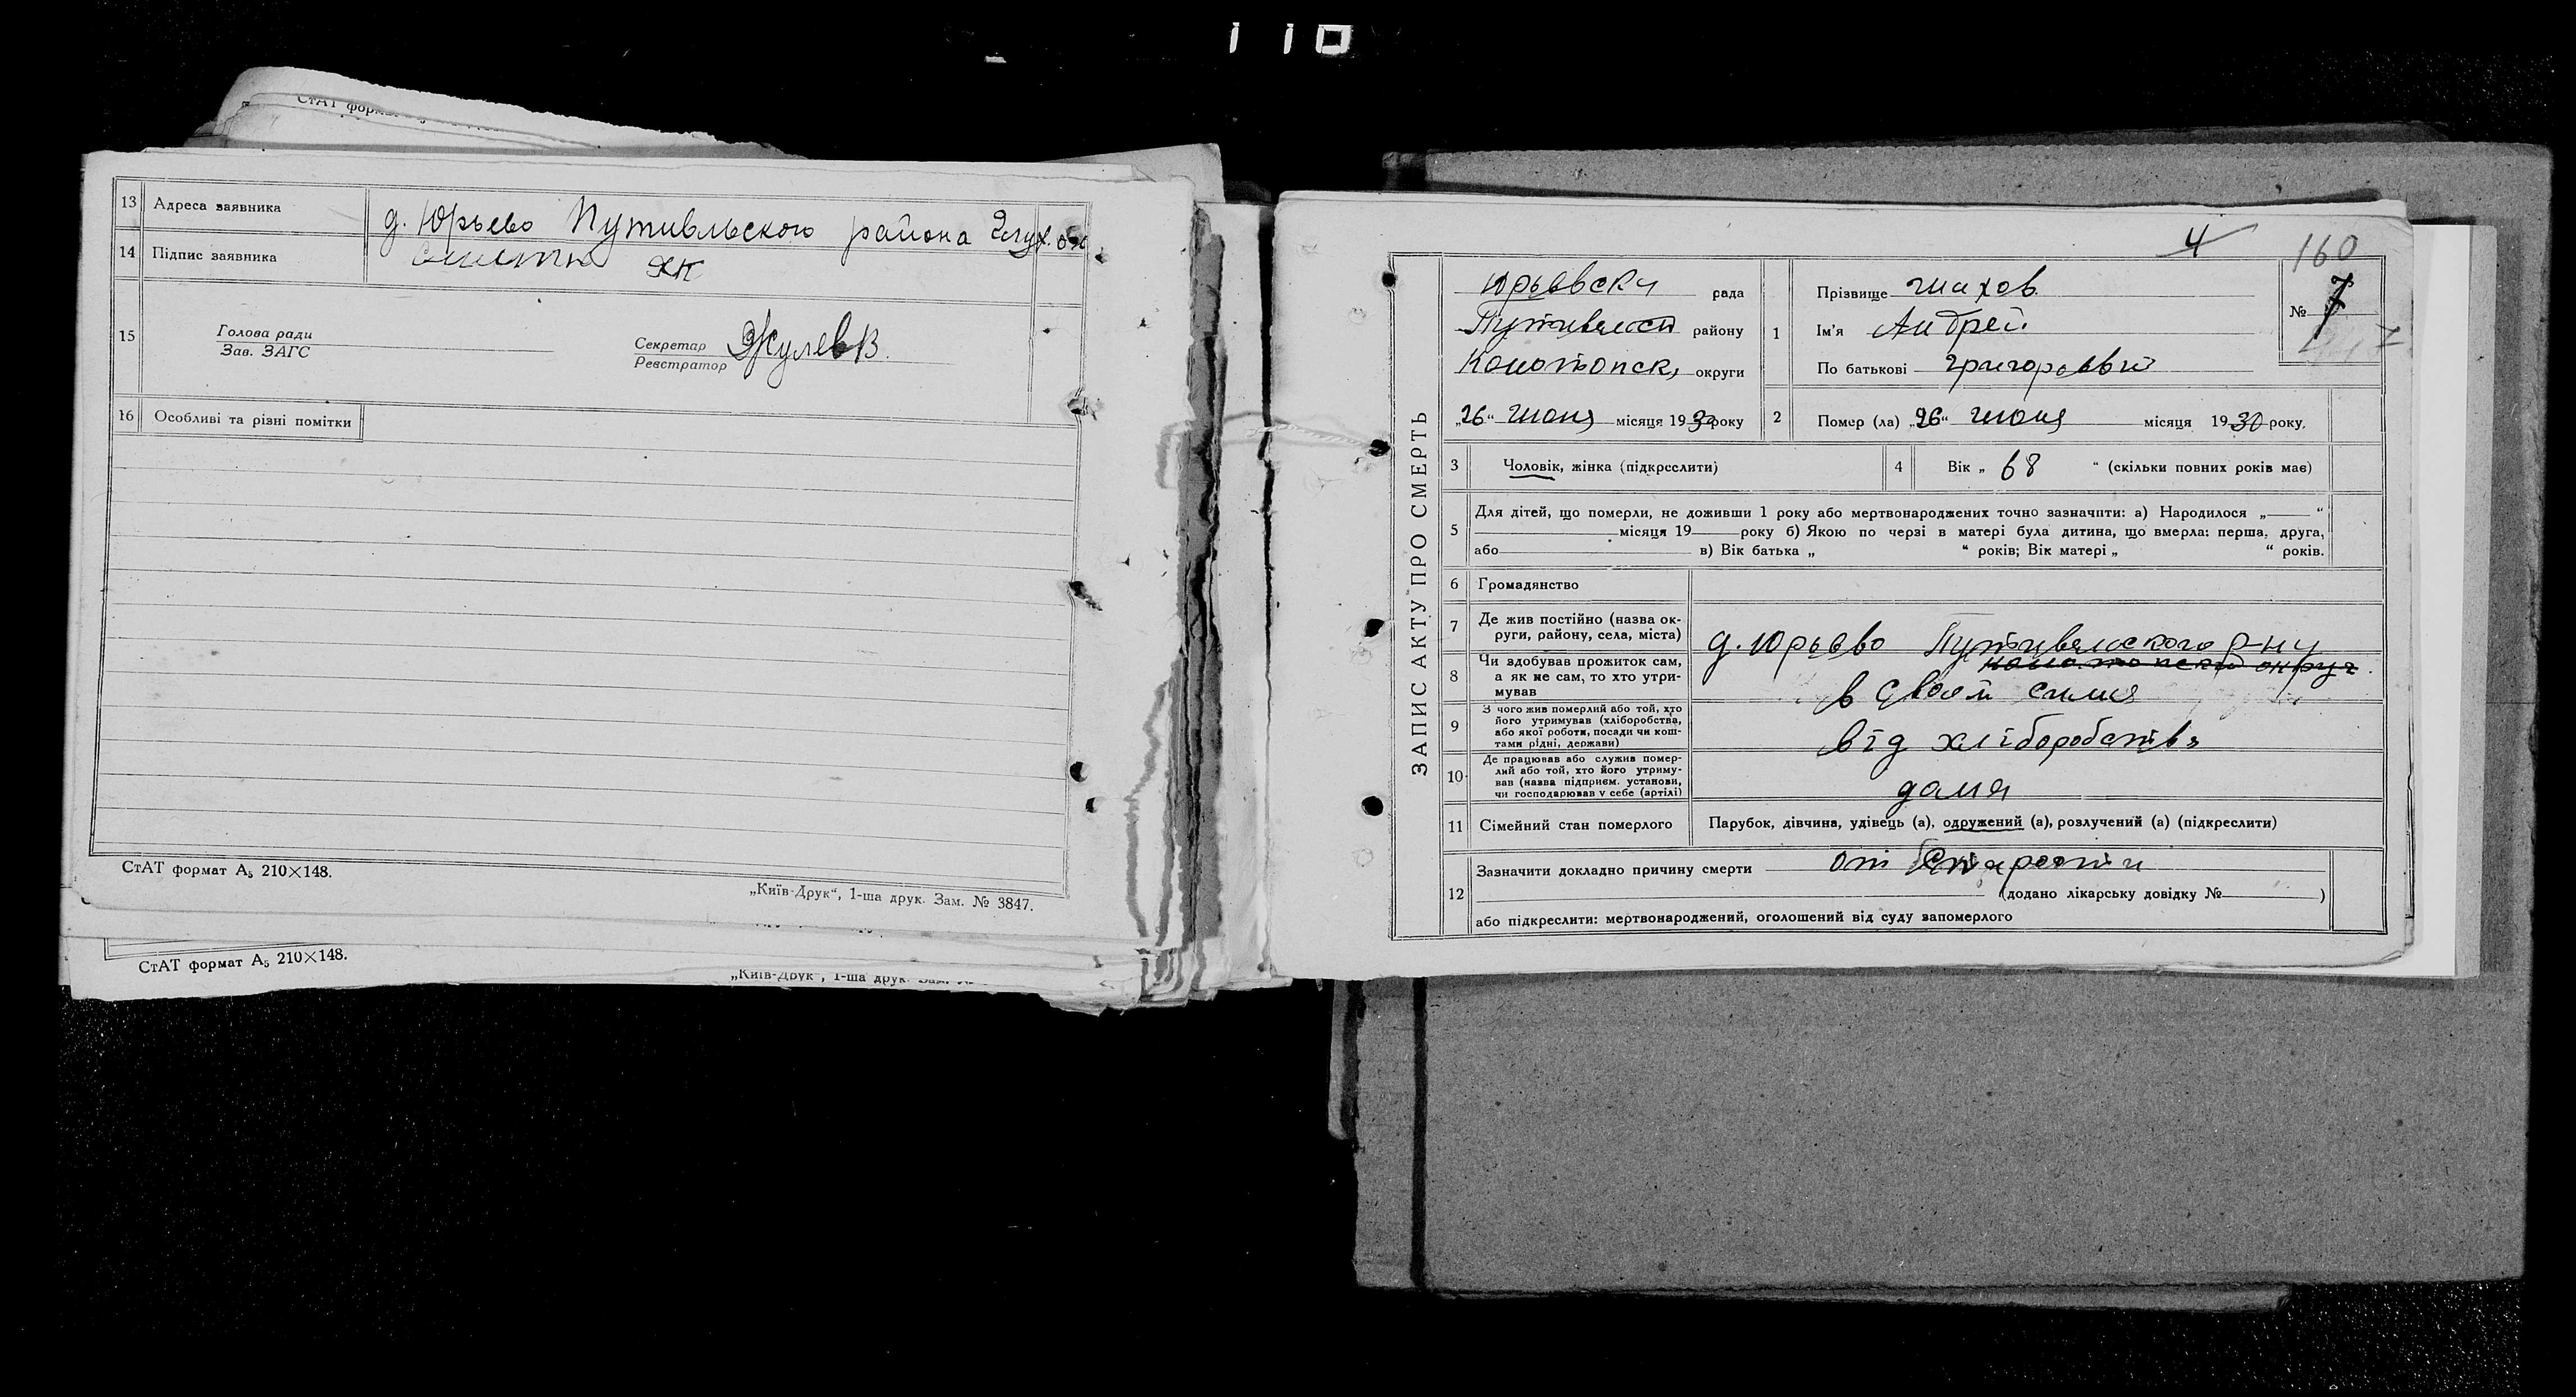 110
СтАТ
13 Адреса заявника д. Юрьево Путивльского района Глух. ок
14 Підпис заявника
15 Голова ради
Зав. ЗАГС
Секретар Жулев В.
Реєстратор
16 Особливі та різні помітки
СтАТ формат А₅ 210×148.
„Київ-Друк“, 1-ша друк. Зам. № 3847.
СтАТ формат А₅ 210×148.
„Київ-Друк“, 1-ша друк.
4
160
ЗАПИС АКТУ ПРО СМЕРТЬ
Юрьевски рада
Путивльск району
Конотопск, округи
„26“ июня місяця 1930 року
1 Прізвище Шахов
Ім'я Андрей
По батькові Григоровый
№ 7
2 Помер (ла) „26“ июня місяця 1930 року.
3 Чоловік, жінка (підкреслити)
4 Вік „ 68 “ (скільки повних років має)
5 Для дітей, що померли, не доживши 1 року або мертвонароджених точно зазначити: а) Народилося „ “
місяця 19 року б) Якою по черзі в матері була дитина, що вмерла: перша, друга,
або в) Вік батька „ “ років; Вік матері „ “ років.
6 Громадянство
7 Де жив постійно (назва ок-
руги, району, села, міста) д. Юрьево Путивельского р-ну
8 Чи здобував прожиток сам,
а як не сам, то хто утри-
мував в своей симя
9 З чого жив померлий або той, хто
його утримував (хліборобства,
або якої роботи, посади чи кош-
тами рідні, держави) від хліборобств
10 Де працював або служив помер-
лий або той, хто його утриму-
вав (назва підприєм. установи,
чи господарював у себе (артілі) дома
11 Сімейний стан померлого Парубок, дівчина, удівець (а), одружений (а), розлучений (а) (підкреслити)
12 Зазначити докладно причину смерти от Старости
(додано лікарську довідку № )
або підкреслити: мертвонароджений, оголошений від суду запомерлого